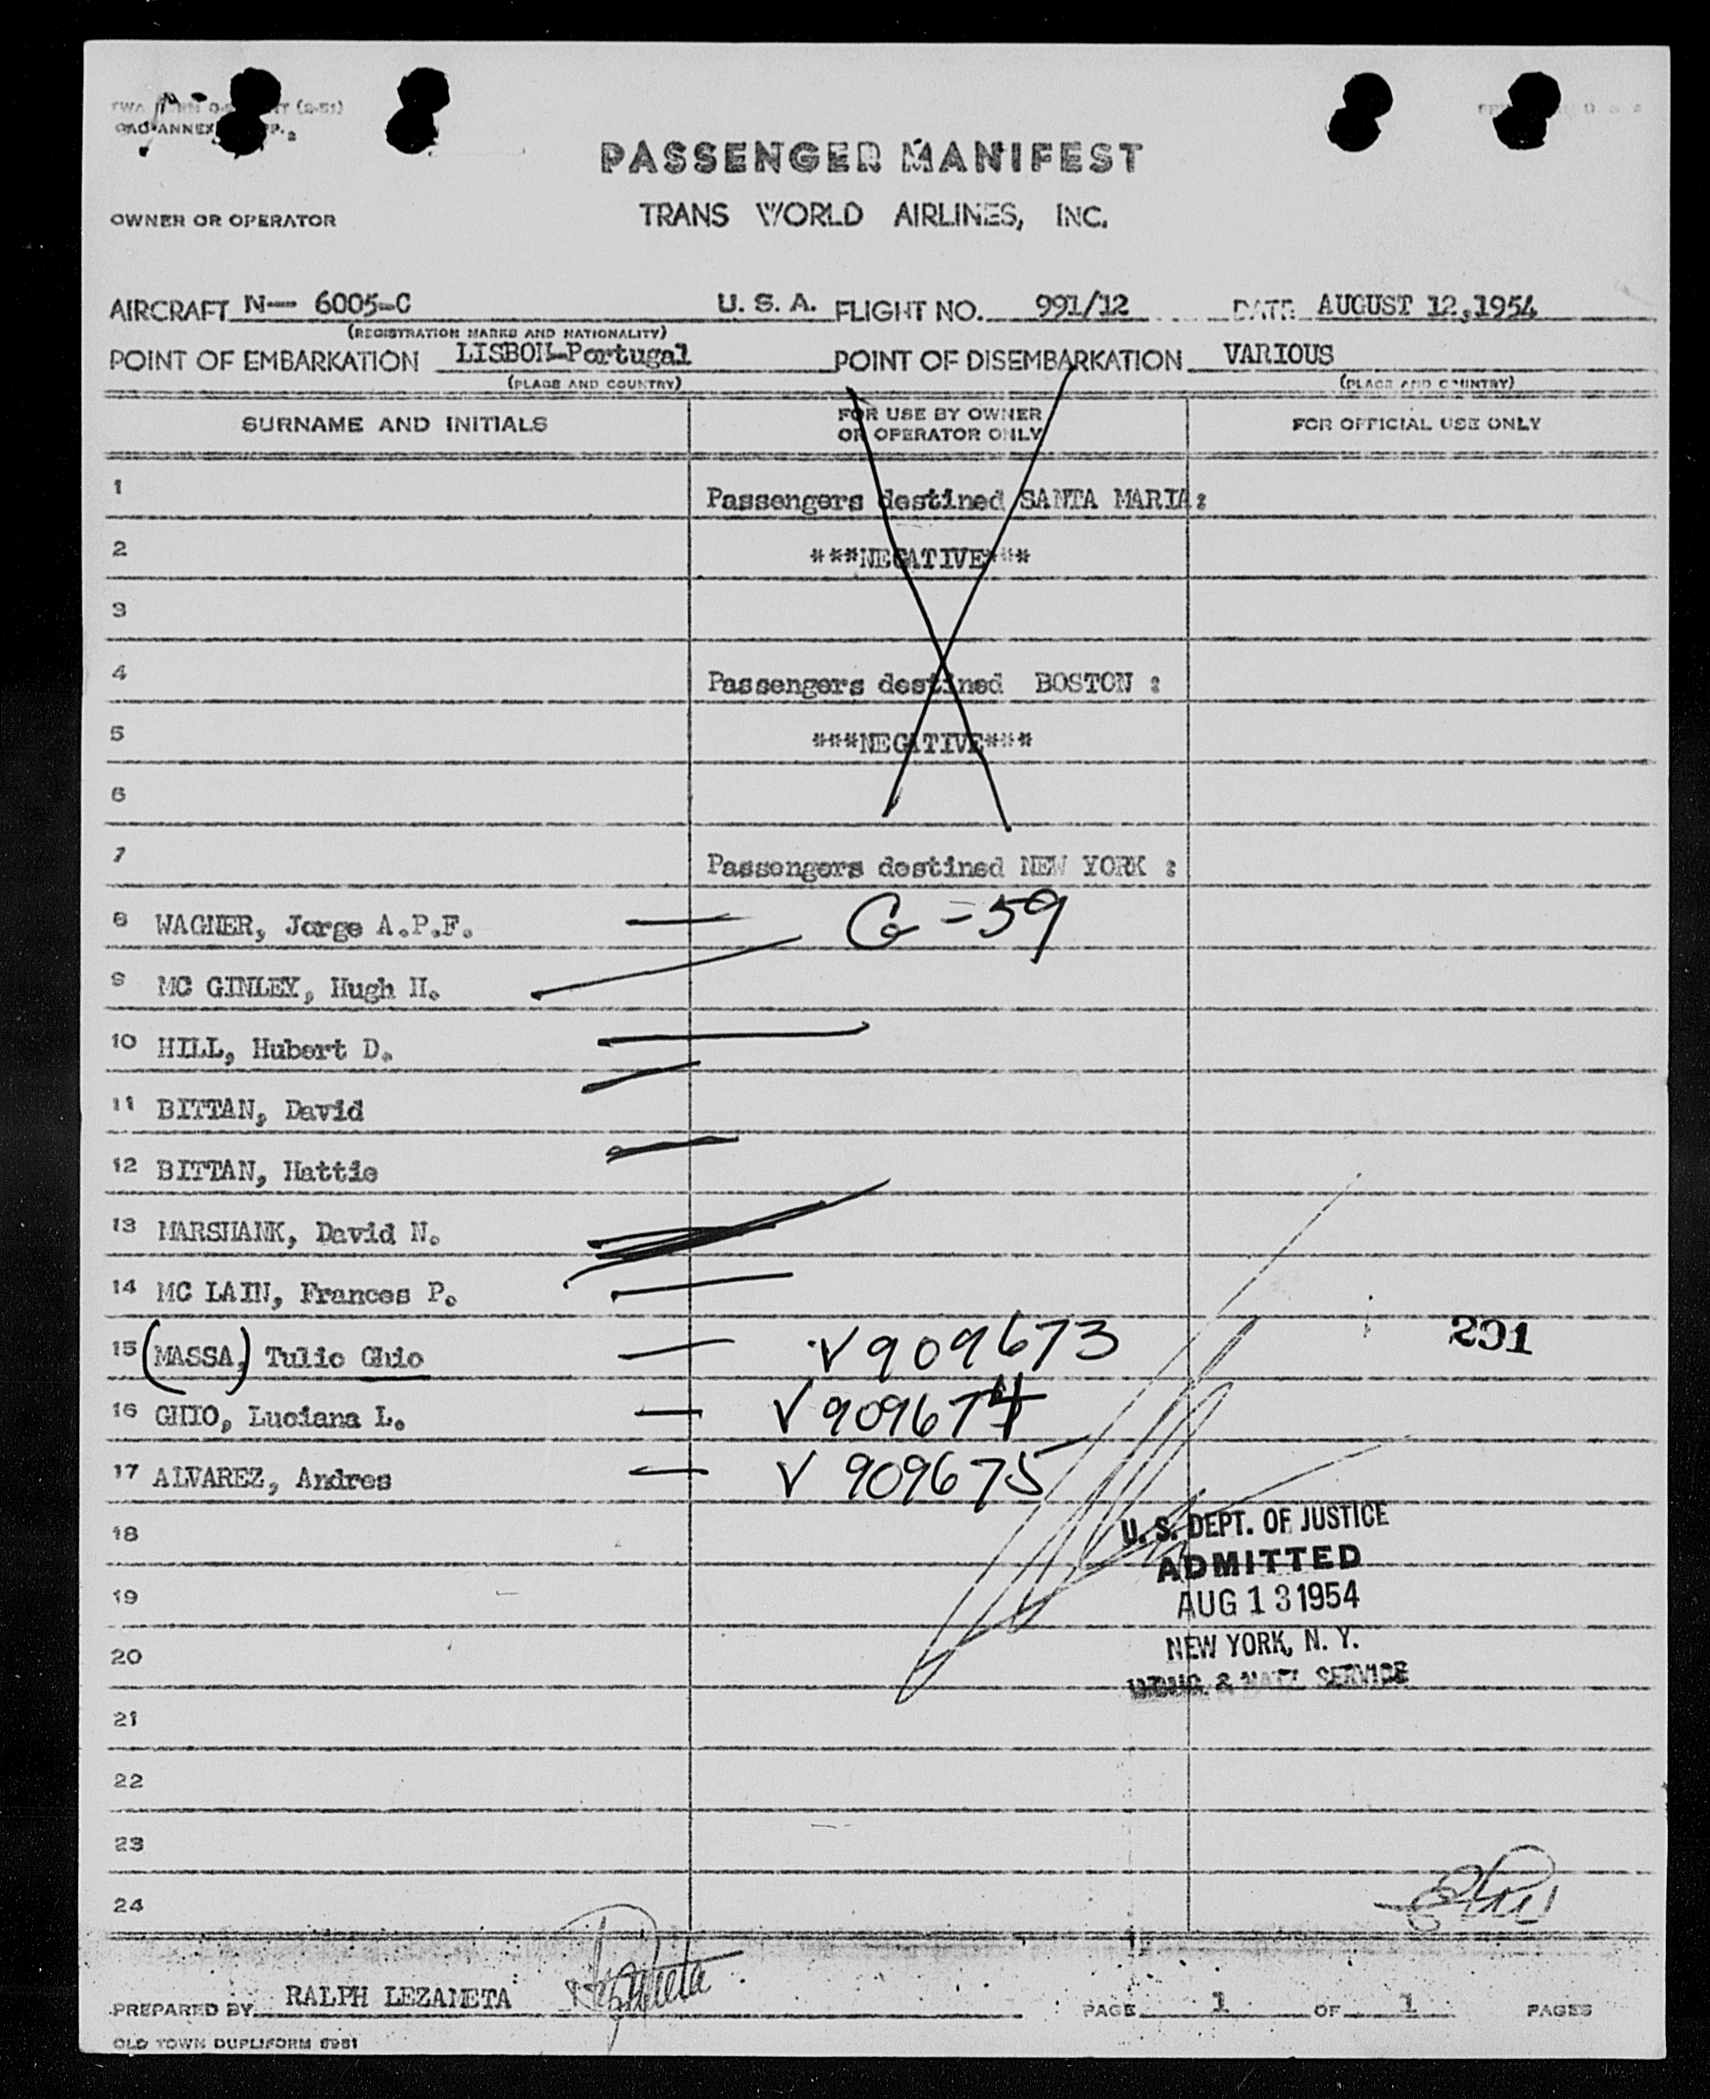 PASSENGER MANIFEST
OWNER OR OPERATOR TRANS WORLD AIRLINES, INC.
AIRCRAFT N— 6005-C U. S. A. FLIGHT NO. 991/12 DATE AUGUST 12,1954
(REGISTRATION MARKS AND NATIONALITY)
POINT OF EMBARKATION LISBON-Portugal POINT OF DISEMBARKATION VARIOUS
(PLACE AND COUNTRY) (PLACE AND COUNTRY)
SURNAME AND INITIALS FOR USE BY OWNER OR OPERATOR ONLY FOR OFFICIAL USE ONLY
1 Passengers destined SANTA MARIA:
2 ***NEGATIVE***
3
4 Passengers destined BOSTON :
5 ***NEGATIVE***
6
7 Passengers destined NEW YORK :
8 WAGNER, Jorge A.P.F. — G-59
9 MC GINLEY, Hugh H.
10 HILL, Hubert D.
11 BITTAN, David
12 BITTAN, Hattie
13 MARSHANK, David N.
14 MC LAIN, Frances P.
15 (MASSA,) Tulio Ghio — V909673 201
16 GHIO, Luciana L. — V909674
17 ALVAREZ, Andres — V909675
18
U. S. DEPT. OF JUSTICE
ADMITTED
19
AUG 13 1954
20
NEW YORK, N. Y.
IMMIG. & NATZ. SERVICE
21
22
23
24
PREPARED BY RALPH LEZAMETA PAGE 1 OF 1 PAGES
OLD TOWN DUPLIFORM 6981